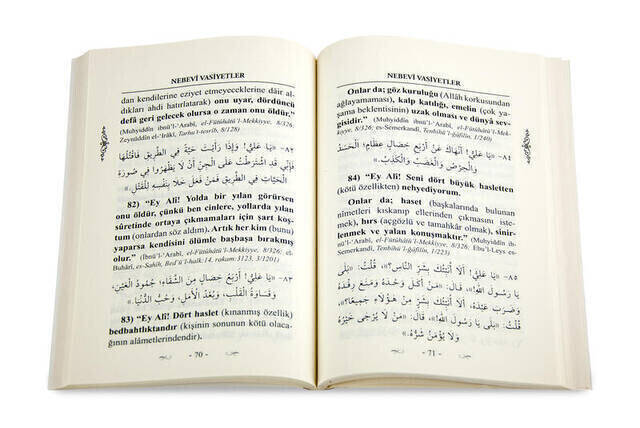 NEBEVÎ VASİYETLER
dan kendilerine eziyet etmeyeceklerine dâir al-
dıkları ahdi hatırlatarak) onu uyar, dördüncü
defâ geri gelecek olursa o zaman onu öldür."
(Muhyiddîn ibnü'l-'Arabî, el-Fütûhâtü'l-Mekkiyye, 8/326;
Zeynüddîn el-'Irâkî, Tarhu't-tesrîb, 8/128)
٨٢- «يَا عَلِيُّ! وَإِذَا رَأَيْتَ حَيَّةً فِي الطَّرِيقِ فَاقْتُلْهَا
فَإِنِّي قَدِ اشْتَرَطْتُ عَلَى الْجِنِّ أَنْ لَا يَظْهَرُوا فِي صُورَةِ
الْحَيَّاتِ فِي الطَّرِيقِ فَمَنْ فَعَلَ خَلَّا بِنَفْسِهِ لِلْقَتْلِ.»
82) "Ey Ali! Yolda bir yılan görürsen
onu öldür, çünkü ben cinlere, yollarda yılan
sûretinde ortaya çıkmamaları için şart koş-
tum (onlardan söz aldım). Artık her kim (bunu)
yaparsa kendisini ölümle başbaşa bırakmış
olur." (İbnü'l-'Arabî, el-Fütûhâtü'l-Mekkiyye, 8/326; el-
Buhârî, es-Sahîh, Bed'ü'l-halk:14, rakam:3123, 3/1201)
٨٣- «يَا عَلِيُّ! أَرْبَعُ خِصَالٍ مِنَ الشَّقَاءِ: جُمُودُ الْعَيْنِ،
وَقَسَاوَةُ الْقَلْبِ، وَبُعْدُ الْأَمَلِ، وَحُبُّ الدُّنْيَا.»
83) "Ey Ali! Dört haslet (kınanmış özellik)
bedbahtlıktandır (kişinin sonunun kötü olaca-
ğının alâmetlerindendir).
- 70 -
NEBEVÎ VASİYETLER
Onlar da; göz kuruluğu (Allâh korkusundan
ağlayamaması), kalp katılığı, emelin (çok ya-
şama beklentisinin) uzak olması ve dünyâ sev-
gisidir." (Muhyiddîn ibnü'l-'Arabî, el-Fütûhâtü'l-Mek-
kiyye, 8/326; es-Semerkandî, Tenbîhü'l-ğâfilîn, 1/240)
٨٤- «يَا عَلِيُّ! أَنْهَاكَ عَنْ أَرْبَعِ خِصَالٍ عِظَامٍ: الْحَسَدُ
وَالْحِرْصُ وَالْغَضَبُ وَالْكَذِبُ.»
84) "Ey Ali! Seni dört büyük hasletten
(kötü özellikten) nehyediyorum.
Onlar da; haset (başkalarında bulunan
nîmetleri kıskanıp ellerinden çıkmasını iste-
mek), hırs (açgözlü ve tamahkâr olmak), sinir-
lenmek ve yalan konuşmaktır." (Muhyiddîn ib-
nü'l-'Arabî, el-Fütûhâtü'l-Mekkiyye, 8/326; Ebu'l-Leys es-
Semerkandî, Tenbîhü'l-ğâfilîn, 1/223)
٨٥- «يَا عَلِيُّ! أَلَا أُنَبِّئُكَ بِشَرِّ النَّاسِ؟»، قُلْتُ: «بَلَى
يَا رَسُولَ اللهِ!»، قَالَ: «مَنْ أَكَلَ وَحْدَهُ وَمَنَعَ رِفْدَهُ
وَضَرَبَ عَبْدَهُ، أَلَا أُنَبِّئُكَ بِشَرٍّ مِنْ هَؤُلَاءِ جَمِيعًا؟»،
قُلْتُ: «بَلَى يَا رَسُولَ اللهِ!»، قَالَ: «مَنْ لَا يُرْجَى خَيْرُهُ
وَلَا يُؤْمَنُ شَرُّهُ.»
- 71 -